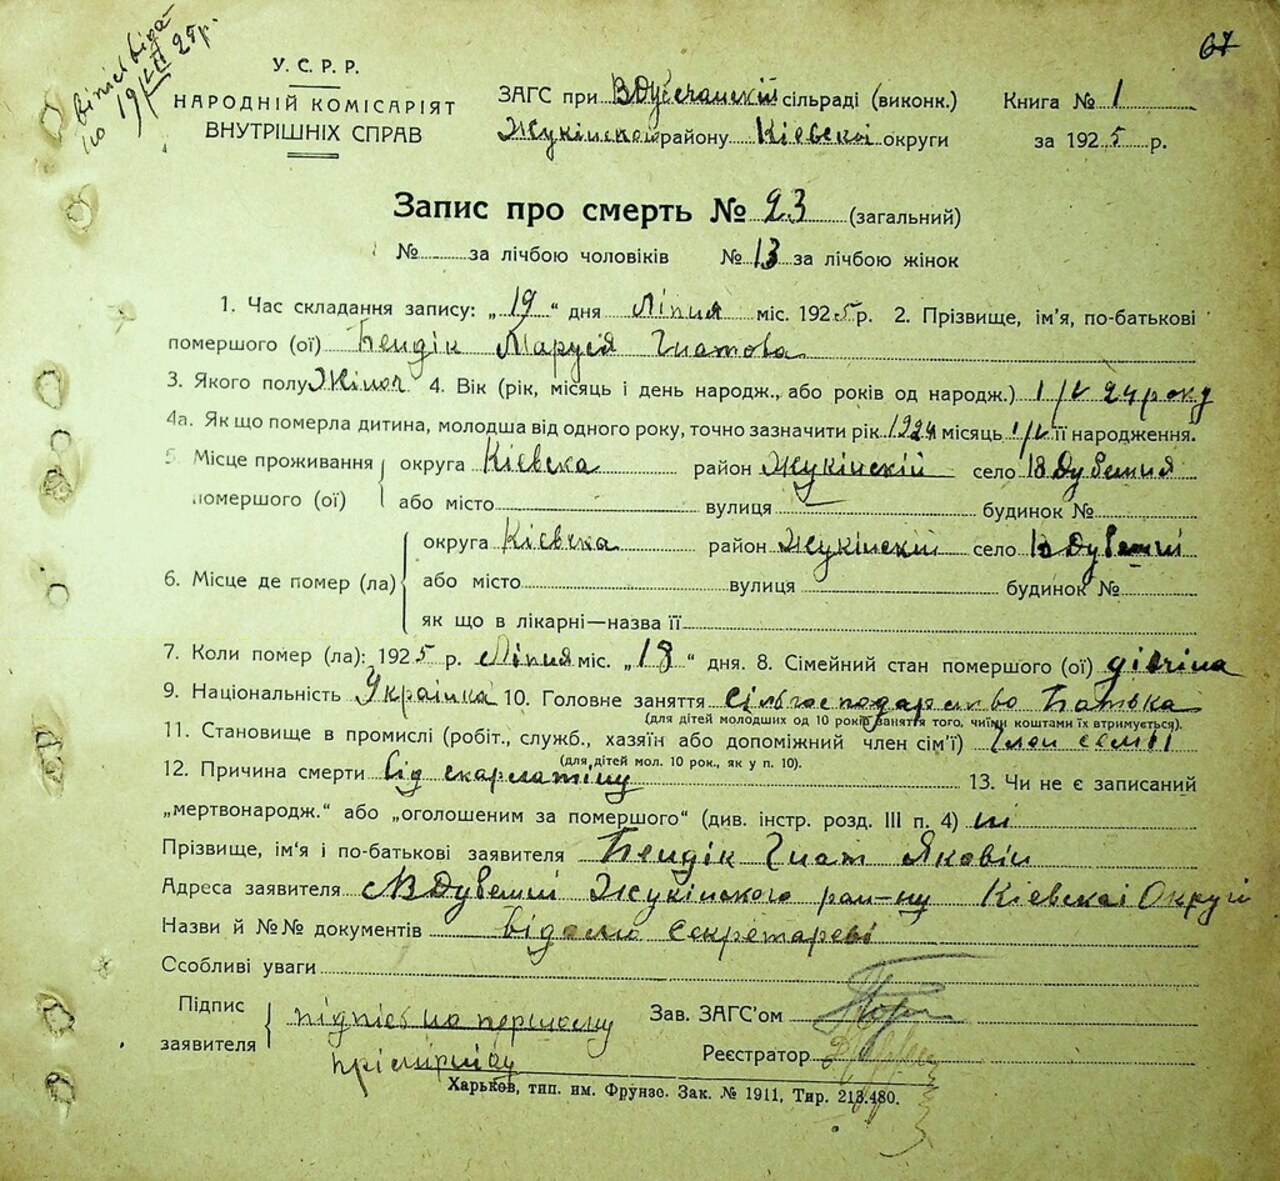 67
19/VII 25 р.
У.С.Р.Р.
НАРОДНІЙ КОМІСАРІЯТ
ВНУТРІШНІХ СПРАВ
ЗАГС при сільраді (виконк.)
Жукінском району Кіевскої округи
Книга № 1
за 1925 р.
Запис про смерть № 23 (загальний)
№ за лічбою чоловіків № 13 за лічбою жінок
1. Час складання запису: „19“ дня Ліпня міс. 1925 р. 2. Прізвище, ім'я, по-батькові
помершого (ої) Бендік Маруся Гнатова
3. Якого полу Жіноч 4. Вік (рік, місяць і день народж., або років од народж.) 1/V 24 року
4а. Як що померла дитина, молодша від одного року, точно зазначити рік 1924 місяць 1/V її народження.
5. Місце проживання округа Кіевска район Жукінскій село
помершого (ої) або місто вулиця будинок №
округа Кіевска район Жукінскій село
6. Місце де помер (ла) або місто вулиця будинок №
як що в лікарні—назва її
7. Коли помер (ла): 1925 р. Ліпня міс. „18“ дня. 8. Сімейний стан помершого (ої) дівчіна
9. Національність Українка 10. Головне заняття Сільгосподарство Батька
(для дітей молодших од 10 років заняття того, чиїми коштами їх втримується).
11. Становище в промислі (робіт., служб., хазяїн або допоміжний член сім'ї) Член семьї
(для дітей мол. 10 рок., як у п. 10).
12. Причина смерти Від скарлатіну 13. Чи не є записаний
„мертвонародж.“ або „оголошеним за помершого“ (див. інстр. розд. III п. 4) ні
Прізвище, ім'я і по-батькові заявителя Бендік Гнат Яковів
Адреса заявителя Жукінского рай-ну Кіевскаі Округи
Назви й №№ документів Відомо Секретареві
Особливі уваги
Підпис
заявителя
підпіс на першому
прімірніку
Зав. ЗАГС'ом
Реєстратор
Харьков, тип. им. Фрунзе. Зак. № 1911, Тир. 213.480.